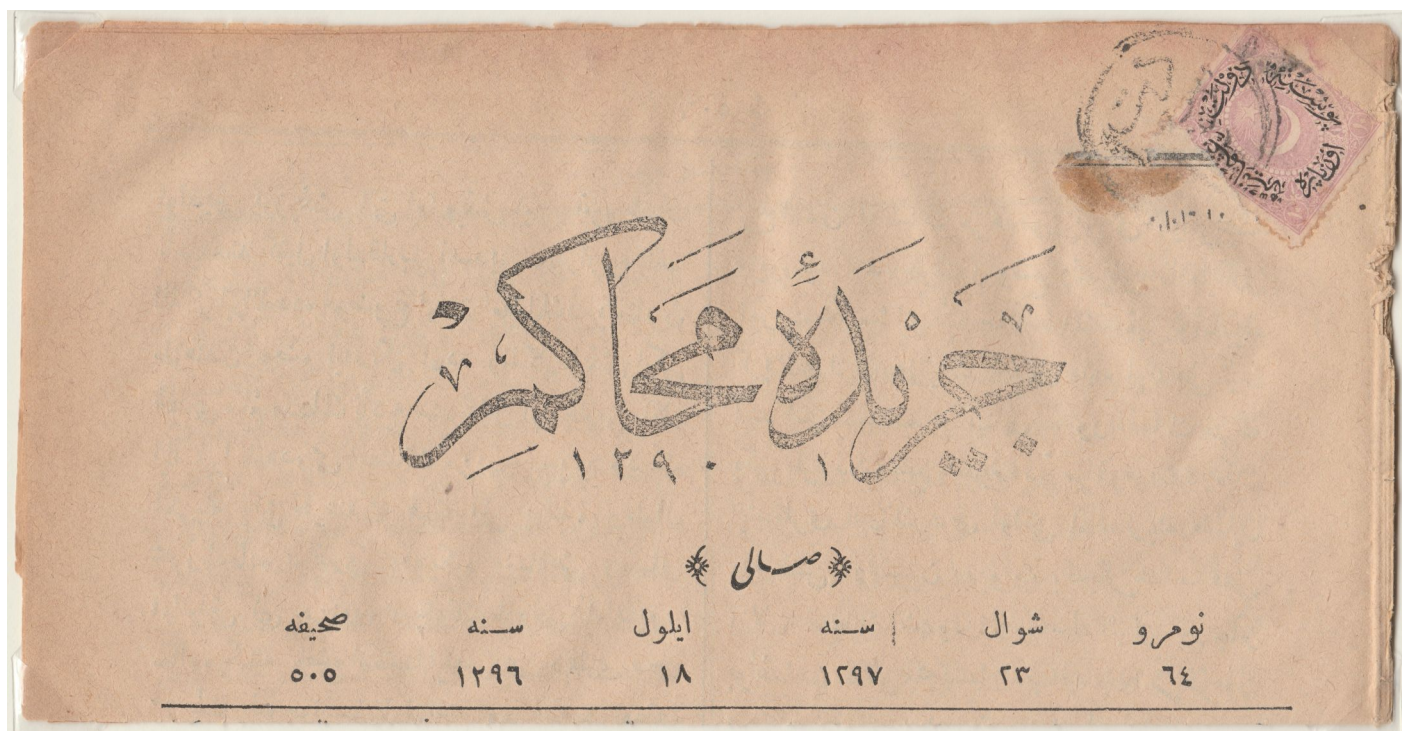 جريدهٔ محاكم
١٢٩٠ ١
صالى
نومرو شوال سنه ايلول سنه صحيفه
٦٤ ٢٣ ١٢٩٧ ١٨ ١٢٩٦ ٥٠٥